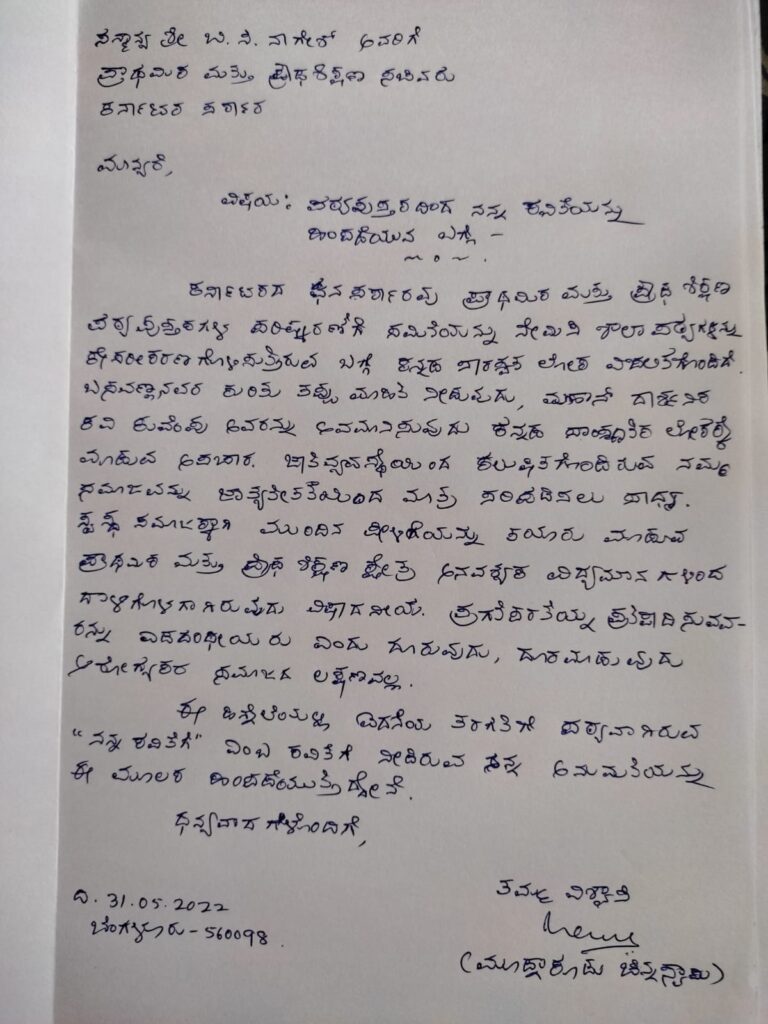 ಸನ್ಮಾನ್ಯ ಶ್ರೀ ಬಿ. ಸಿ. ನಾಗೇಶ್ ಅವರಿಗೆ
ಪ್ರಾಥಮಿಕ ಮತ್ತು ಪ್ರೌಢಶಿಕ್ಷಣ ಸಚಿವರು
ಕರ್ನಾಟಕ ಸರ್ಕಾರ
ಮಾನ್ಯರೆ,
ವಿಷಯ: ಪಠ್ಯಪುಸ್ತಕದಿಂದ ನನ್ನ ಕವಿತೆಯನ್ನು
ಹಿಂಪಡೆಯುವ ಬಗ್ಗೆ –
ಕರ್ನಾಟಕದ ಘನ ಸರ್ಕಾರವು ಪ್ರಾಥಮಿಕ ಮತ್ತು ಪ್ರೌಢ ಶಿಕ್ಷಣ
ಪಠ್ಯಪುಸ್ತಕಗಳ ಪರಿಷ್ಕರಣೆಗೆ ಸಮಿತಿಯನ್ನು ನೇಮಿಸಿ ಶಾಲಾ ಪಠ್ಯಗಳನ್ನು
ಕೇಸರೀಕರಣಗೊಳಿಸುತ್ತಿರುವ ಬಗ್ಗೆ ಕನ್ನಡ ಸಾರಸ್ವತ ಲೋಕ ವಿಚಲಿತಗೊಂಡಿದೆ.
ಬಸವಣ್ಣನವರ ಕುರಿತು ತಪ್ಪು ಮಾಹಿತಿ ನೀಡುವುದು, ಮಹಾನ್ ದಾರ್ಶನಿಕ
ಕವಿ ಕುವೆಂಪು ಅವರನ್ನು ಅವಮಾನಿಸುವುದು ಕನ್ನಡ ಸಾಂಸ್ಕೃತಿಕ ಲೋಕಕ್ಕೆ
ಮಾಡುವ ಅಪಚಾರ. ಜಾತಿವ್ಯವಸ್ಥೆಯಿಂದ ಕಲುಷಿತಗೊಂಡಿರುವ ನಮ್ಮ
ಸಮಾಜವನ್ನು ಜಾತ್ಯತೀತತೆಯಿಂದ ಮಾತ್ರ ಸರಿಪಡಿಸಲು ಸಾಧ್ಯ.
ಸ್ವಸ್ಥ ಸಮಾಜಕ್ಕಾಗಿ ಮುಂದಿನ ಪೀಳಿಗೆಯನ್ನು ತಯಾರು ಮಾಡುವ
ಪ್ರಾಥಮಿಕ ಮತ್ತು ಪ್ರೌಢ ಶಿಕ್ಷಣ ಕ್ಷೇತ್ರ ಅನವಶ್ಯಕ ವಿದ್ಯಮಾನಗಳಿಂದ
ದಾಳಿಗೊಳಗಾಗಿರುವುದು ವಿಷಾದನೀಯ. ಪ್ರಗತಿಪರತೆಯನ್ನು ಪ್ರತಿಪಾದಿಸುವವ-
ರನ್ನು ಎಡಪಂಥೀಯರು ಎಂದು ದೂರುವುದು, ದೂರಮಾಡುವುದು
ಆರೋಗ್ಯಕರ ಸಮಾಜದ ಲಕ್ಷಣವಲ್ಲ.
ಈ ಹಿನ್ನೆಲೆಯಲ್ಲಿ ಐದನೆಯ ತರಗತಿಗೆ ಪಠ್ಯವಾಗಿರುವ
"ನನ್ನ ಕವಿತೆಗೆ" ಎಂಬ ಕವಿತೆಗೆ ನೀಡಿರುವ ನನ್ನ ಅನುಮತಿಯನ್ನು
ಈ ಮೂಲಕ ಹಿಂಪಡೆಯುತ್ತಿದ್ದೇನೆ.
ಧನ್ಯವಾದಗಳೊಂದಿಗೆ,
ತಮ್ಮ ವಿಶ್ವಾಸಿ
ದಿ. 31.05.2022
ಬೆಂಗಳೂರು – 560098.
(ಮೂಡ್ನಾಕೂಡು ಚಿನ್ನಸ್ವಾಮಿ)